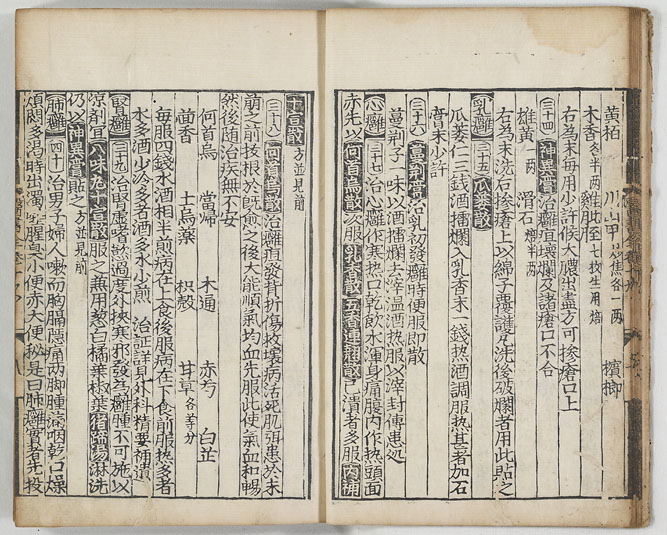 黄柏 川山甲 檳榔
木香 雞肶胵
右為末每用少許候大膿出盡方可摻瘡口上
三十四 神異膏 治癰疽壞爛及諸瘡口不合
雄黄一兩 滑石
右為末洗右摻瘡上以綿子覆護凡洗後破爛者用此貼之
乳癰 三十五 瓜蔞散
瓜蔞仁三錢酒擂爛入乳香末一錢热酒調服热甚者加石
膏末少許
三十六 蔓荆膏 治乳初發癰時便服即散
蔓荆子一味以酒擂爛去滓温酒热服以滓封傳患処
心癰 三十七 治心癰作寒热口乾飲水渾身痛腹内作热頭面
赤先以何首烏散次服乳香散五香連翹散已潰者多服内補
十宣散 方並見前
三十八 何首烏散 治癰疽發背折傷救壞病活死肌弭患於未
萠之前拔根於旣愈之後大能順氣均血先服此使氣血和暢
然後随治疾無不安
何首烏 當歸 木通 赤芍 白芷
茴香 土烏薬 枳殻 甘草各等分
毎服四錢水酒相半煎病在上食後服病在下食前服热多者
水多酒少冷多者酒多水少煎 治証詳見外科精要補遺
腎癰 三十九 治腎虚者然過度外挾寒邪發為癰腫不可施以
凉剤宜八味丸十宣散服之兼用葱白橘葉椒葉猪蹄湯淋洗
仍以神異膏貼之 方並見前
肺癰 四十 治男子婦人嗽而胸膈隱痛兩脚腫滿咽乾口燥
煩悶多渴時出濁唾腥臭小便赤大便秘是曰肺癰實者先投